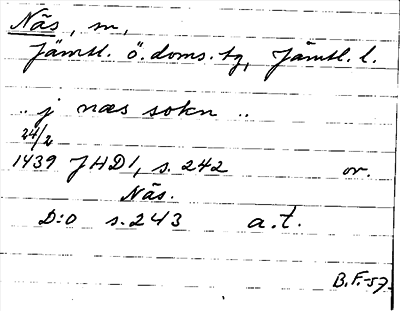 Näs, m,
Jämtl. ö. doms. tg, Jämtl. l.
.. j næs sokn ..
24/2
1439 JHD1, s. 242 or.
Näs.
D:o s. 243 a.t.
B.F.-57.